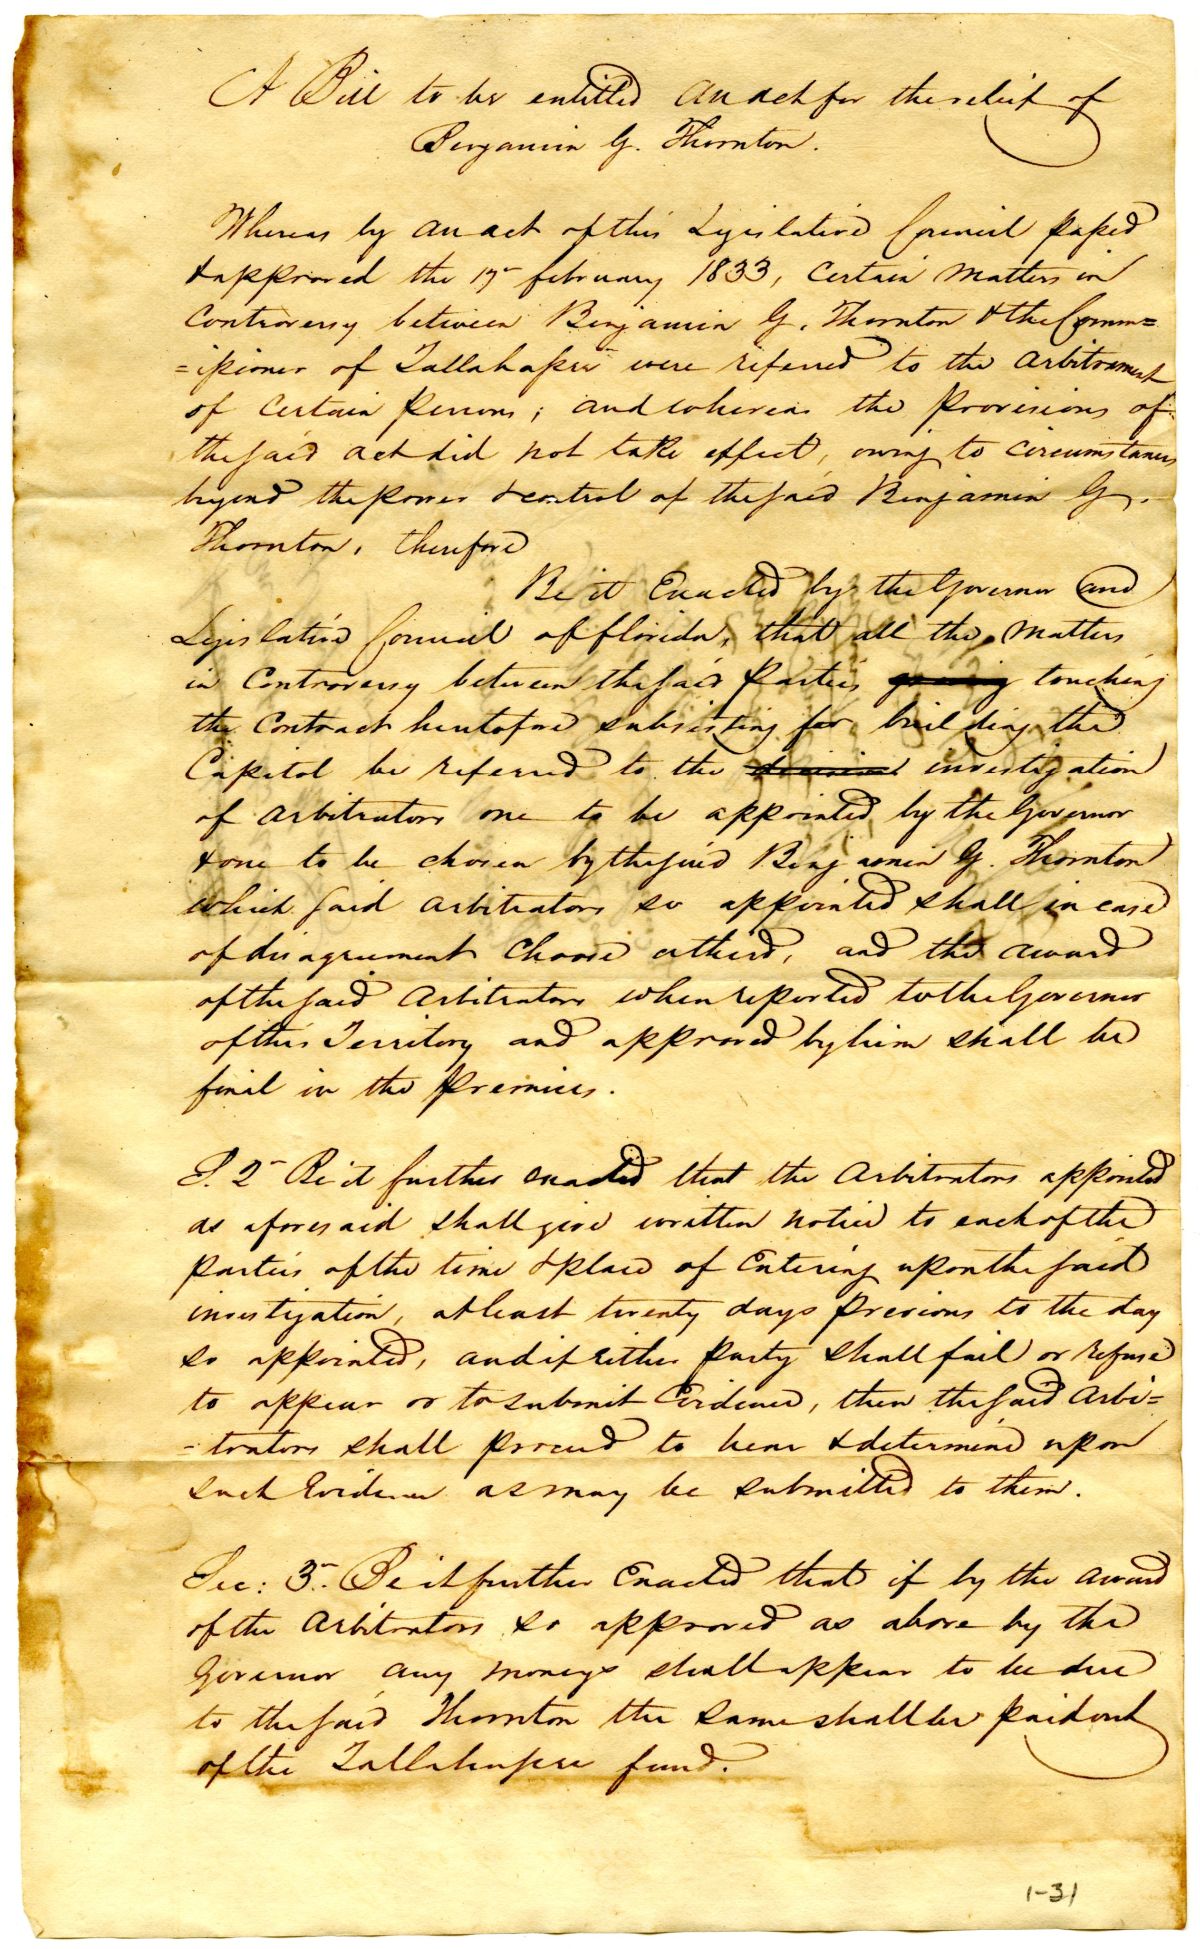 A Bill to be entitled an act for the relief of
Benjamin G. Thornton.
Whereas by an act of this Legislative Council passed
& approved the 17th february 1833, Certain Matters in
Controversy between Benjamin G. Thornton & the Comm=
=issioner of Tallahassee were referred to the arbitrament
of Certain persons; and whereas the provisions of
the said act did not take effect, owing to circumstances
beyond the power & control of the said Benjamin G.
Thornton, therefore
Be it Enacted by the Governor and
Legislative Council of florida, that all the Matters
in Controversy between the said parties touching
the Contract heretofore subsisting for building the
Capitol be referred to the decision investigation
of arbitrators one to be appointed by the Governor
& one to be chosen by the said Benjamin G. Thornton
which said arbitrators so appointed shall in case
of disagreement Choose a third, and the award
of the said arbitrators when reported to the Governor
of this Territory and approved by him shall be
final in the premises.
S. 2 Be it further enacted that the Arbitrators appointed
as aforesaid shall give written notice to each of the
parties of the time & place of Entering upon the said
investigation, at least twenty days previous to the day
so appointed, and if either party shall fail or refuse
to appear or to submit Evidence, then the said Arbi=
-trators shall proceed to hear & determine upon
such Evidence as may be submitted to them.
Sec: 3. Be it further Enacted that if by the award
of the Arbitrators so approved as above by the
Governor any moneys shall appear to be due
to the said Thornton the same shall be paid out
of the Tallahassee fund.
1-31